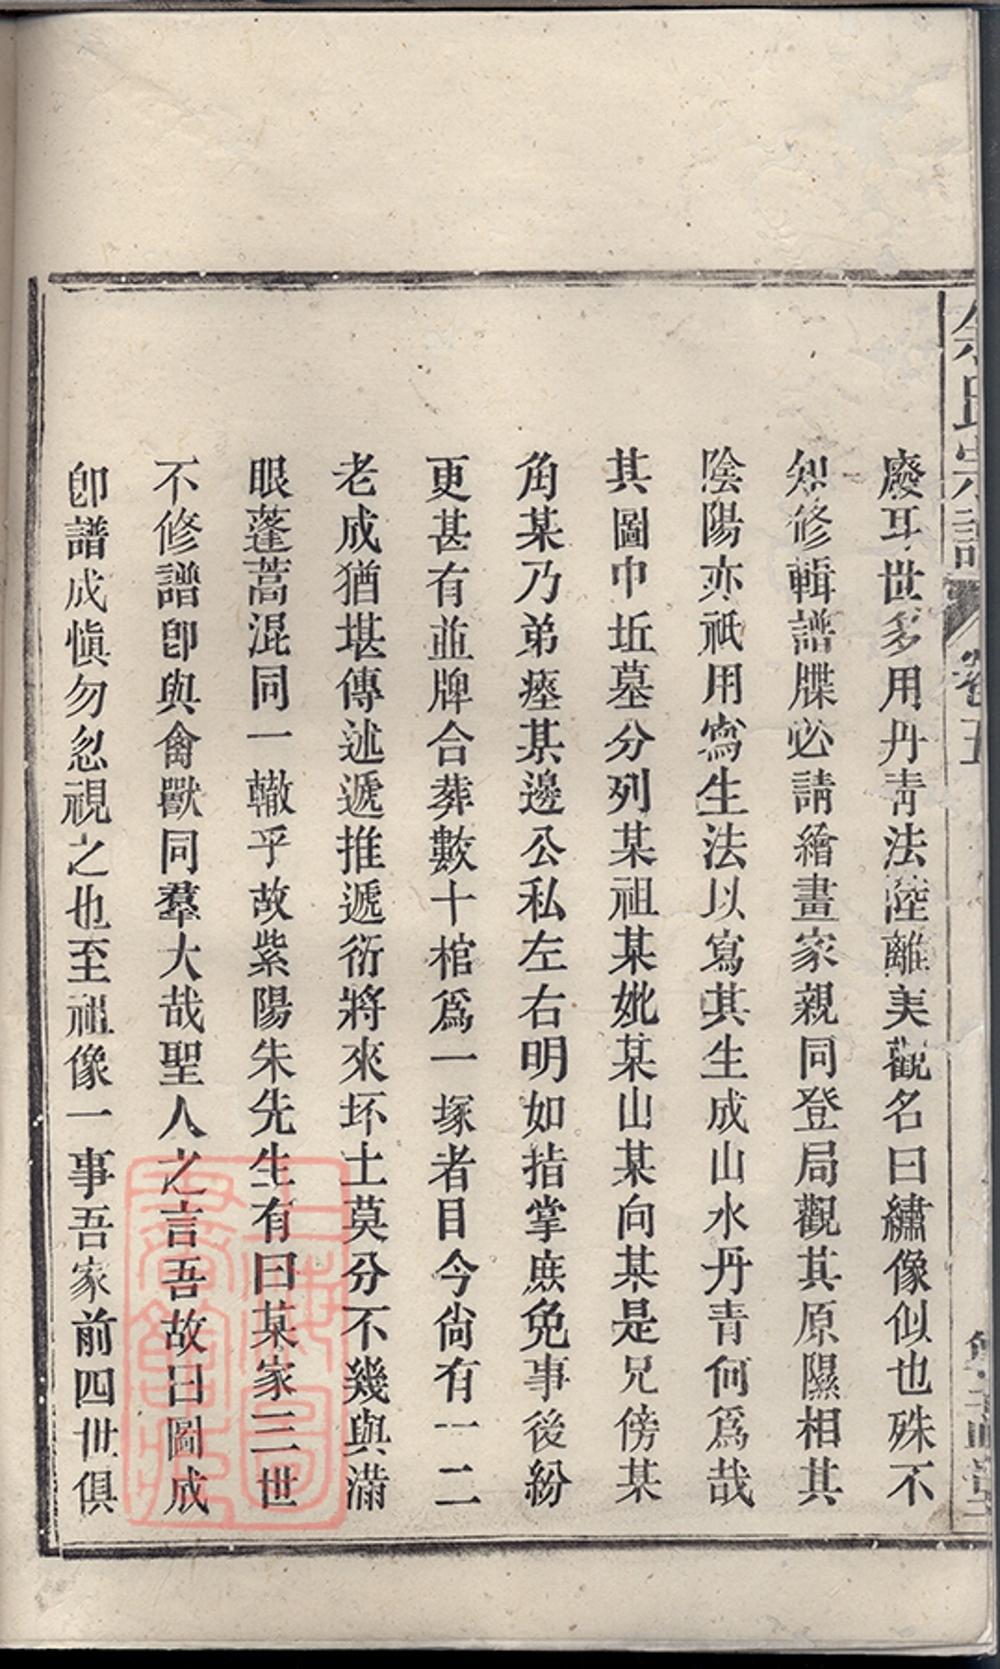 余氏宗譜
卷五
廢耳世多用丹青法陸離美觀名曰繡像似也殊不
知修輯譜牒必請繪畫家親同登局觀其原隰相其
陰陽亦祇用寫生法以寫其生成山水丹青何爲哉
其圖巾坵墓分列某祖某妣某山某向某是兄傍某
角某乃弟瘞某邊公私左右明如指掌庶免事後紛
更甚有並牌合葬數十棺爲一塚者目今尙有一二
老成猶堪傳述遞推遞衍將來坏土莫分不幾與滿
眼蓬蒿混同一轍乎故紫陽朱先生有曰某家三世
不修譜卽與禽獸同羣大哉聖人之言吾故曰圖成
卽譜成愼勿忽視之也至祖像一事吾家前四世俱
上海圖書館藏